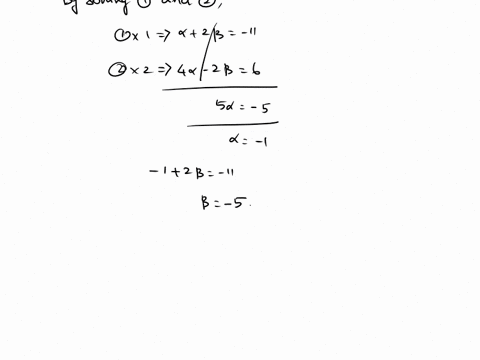 By solving ① and ②,
① × 1 => α + 2β = -11
② × 2 => 4α - 2β = 6
5α = -5
α = -1
-1 + 2β = -11
β = -5.